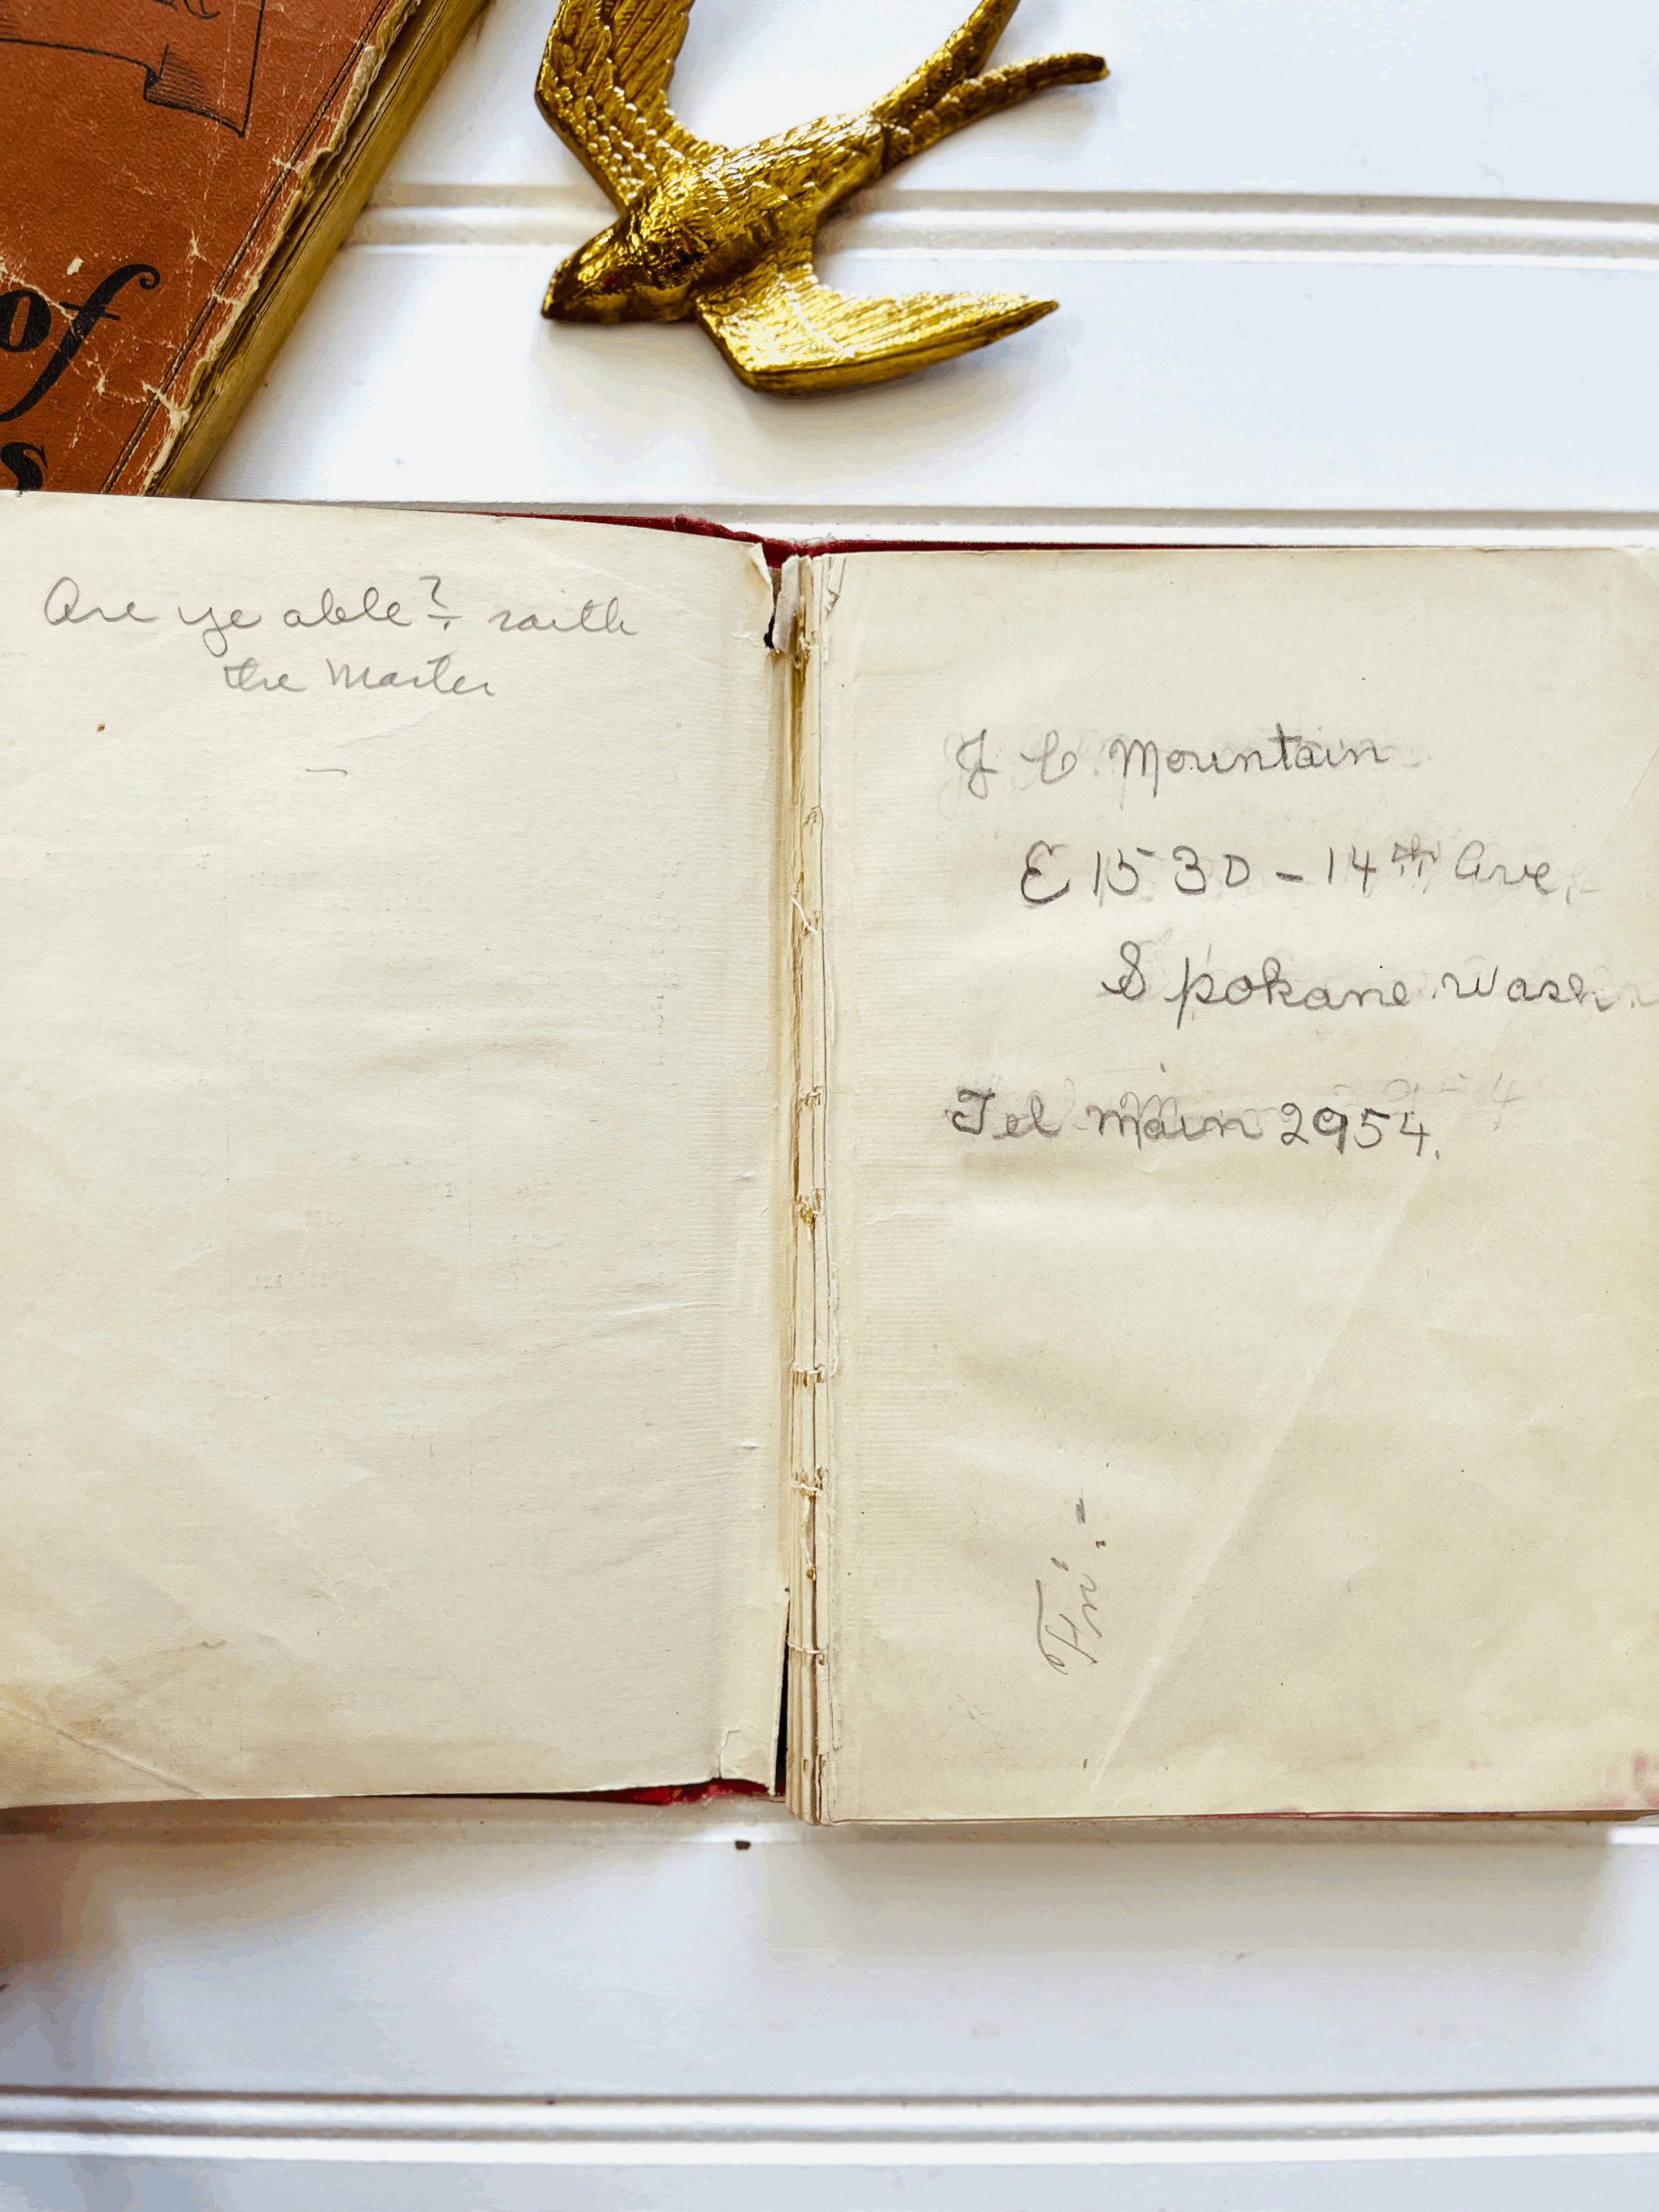 of
s
Are ye able? saith
the Master
J C Mountain
E 1530 - 14th Ave,
Spokane Wash.
Tel Main 2954.
Fri. -